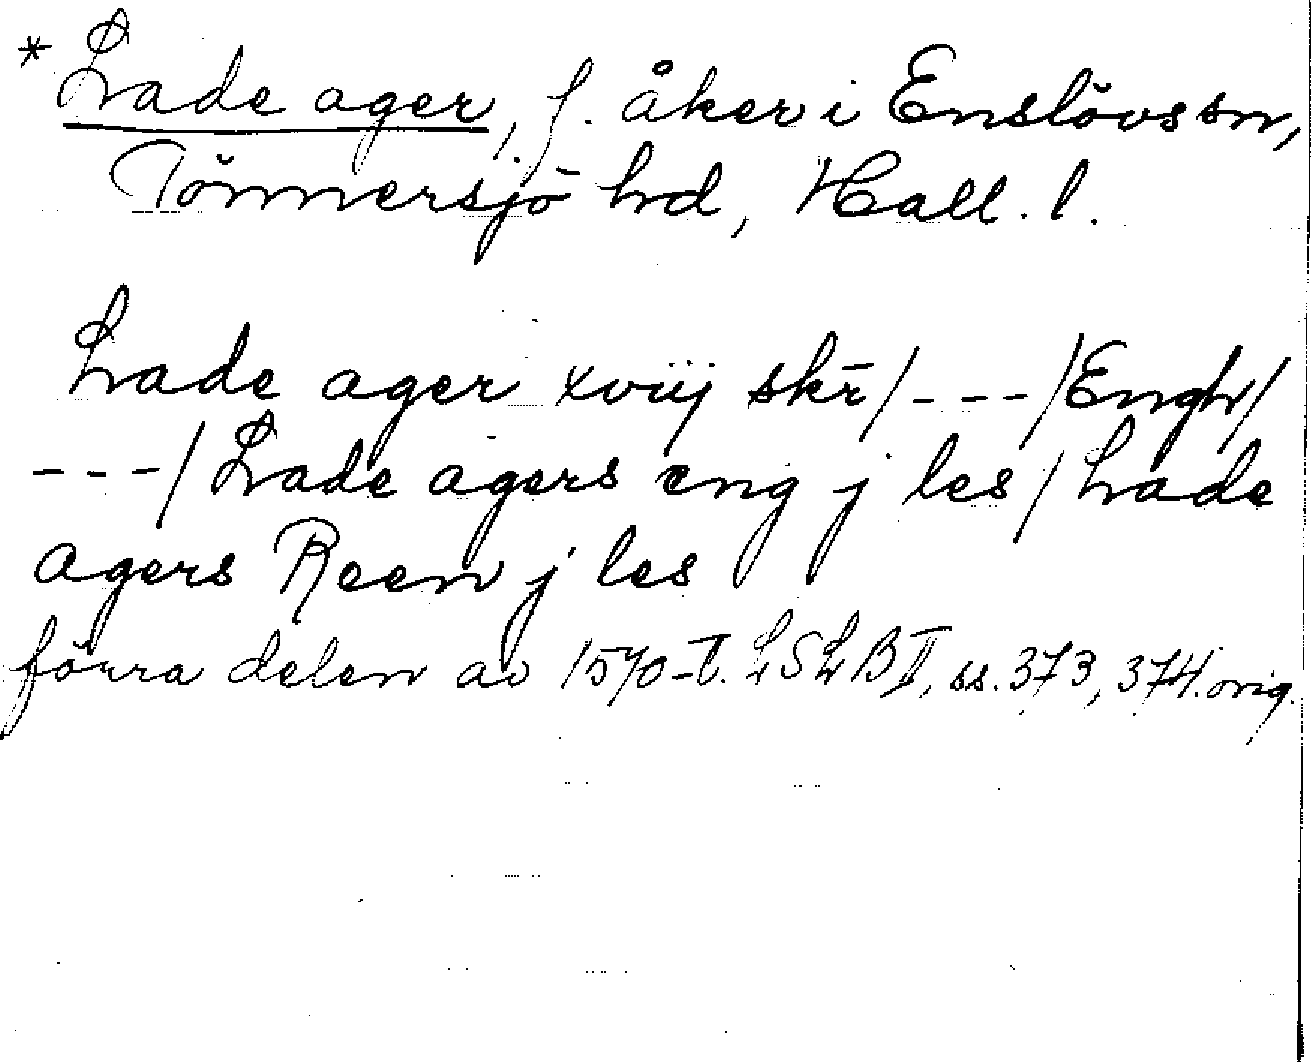 *Lade ager, f. åker i Enslövs sn,
Tönnersjö hd, Hall. l.
Lade ager xviij skr̄/---/Engh/
---/Lade agers eng j les/Lade
agers Reen j les
förra delen av 1570-t. LSLB II, ss. 373, 374. orig.